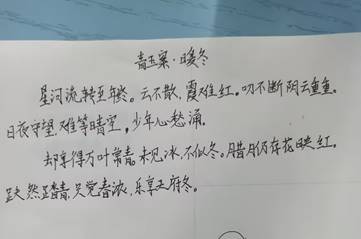 青玉案·暖冬
星河流转至年终。云不散,霞难红。叨不断阴云重重。
日夜守望难等晴空,少年心愁涌。
却享得万叶常青。未见冰,不似冬。腊月仍存花映红。
天然踏青只觉春浓,乐享天府冬。